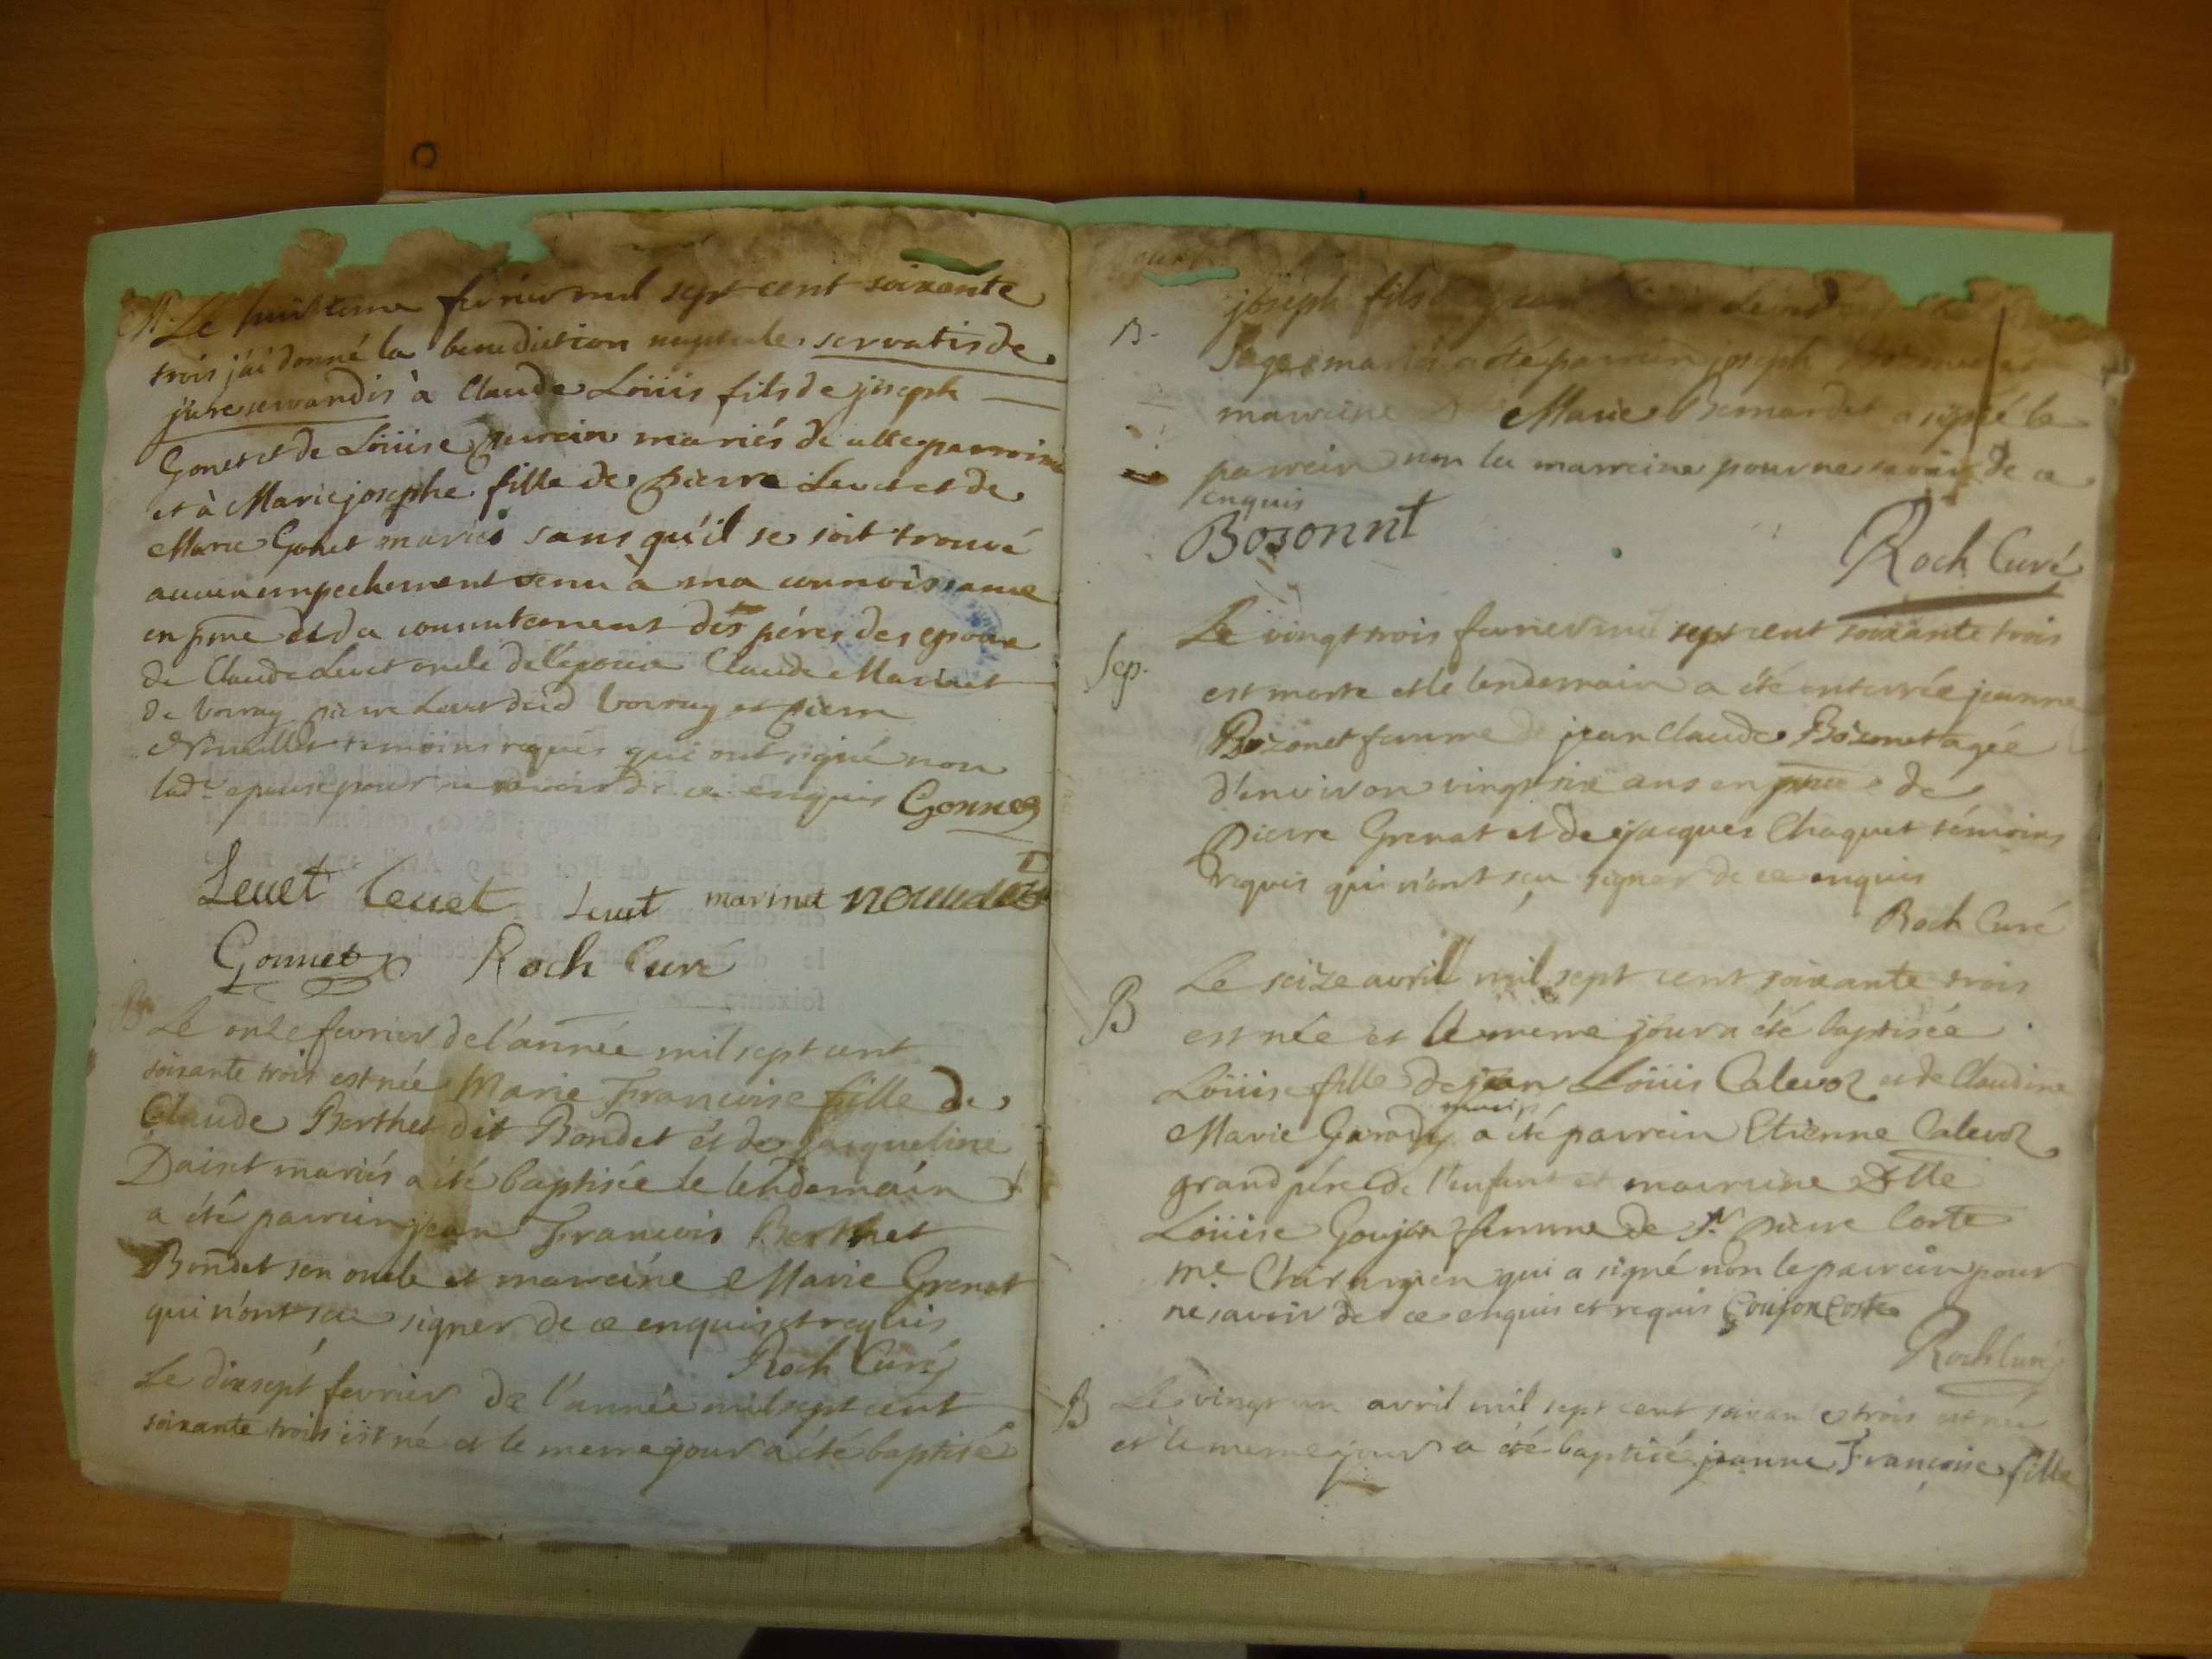 M. Le huitieme fevrier mil sept cent soixante
trois j'ai donné la benediction nuptiale servatis de
jure servandis à Claude Loüis fils de joseph
Gonet et de Loüise mariés de cette parroisse
et à Marie josephe fille de Pierre Levet et de
Marie Gonet mariés sans qu'il se soit trouvé
aucun empechement venu à ma connoissance
en pnce et du consentement des péres des epoux
de Claude Levet oncle de l'epouse Claude Marinet
de Vovray pierre Levet dud Vovray et pierre
temoins requis qui ont signé non
lade epouse pour ne savoir de ce enquis Gonnet
Levet Levet Levet marinet
Gonnet Roch Curé
B Le onze fevrier de l'année mil sept cent
soixante trois est née Marie Francoise fille de
Claude Berthet dit Bondet et de jacqueline
Daint mariés a été baptisée le lendemain
a été parrein jean Francois Berthet
Bondet son oncle et marreine Marie Grenat
qui n'ont sçu signer de ce enquis et requis
Roch Curé
Le dixsept fevrier de l'année mil sept cent
soixante trois est né et le meme jour a été baptisé
joseph fils
B. mariés a été parrein joseph
marreine Marie Bernardet a signé le
parrein non la marreine pour ne savoir de ce
enquis
Bozonnt
Roch Curé
Le vingt trois fevrier mil sept cent soixante trois
Sep. est morte et le lendemain a été enterrée jeanne
Bozonet femme de jean Claude Bozonet agée
d'environ vingt six ans en pnce de
Pierre Grenat et de jacques Chaquet témoins
requis qui n'ont sçu signer de ce enquis
Roch Curé
Le seize avril mil sept cent soixante trois
B est née et le meme jour a été baptisée
Loüise fille de jean Loüis Calevoz et de Claudine
mariés
Marie Garady a été parrein Etienne Calevoz
grand pére de l'enfant et marreine Dlle
Loüise Goujon femme de Sr. pierre Coste
me. Chirurgien qui a signé non le parrein pour
ne savoir de ce enquis et requis Goujon Coste
Roch Curé
B Le vingt un avril mil sept cent soixante trois est née
et le meme jour a été baptisé jeanne Françoise fille